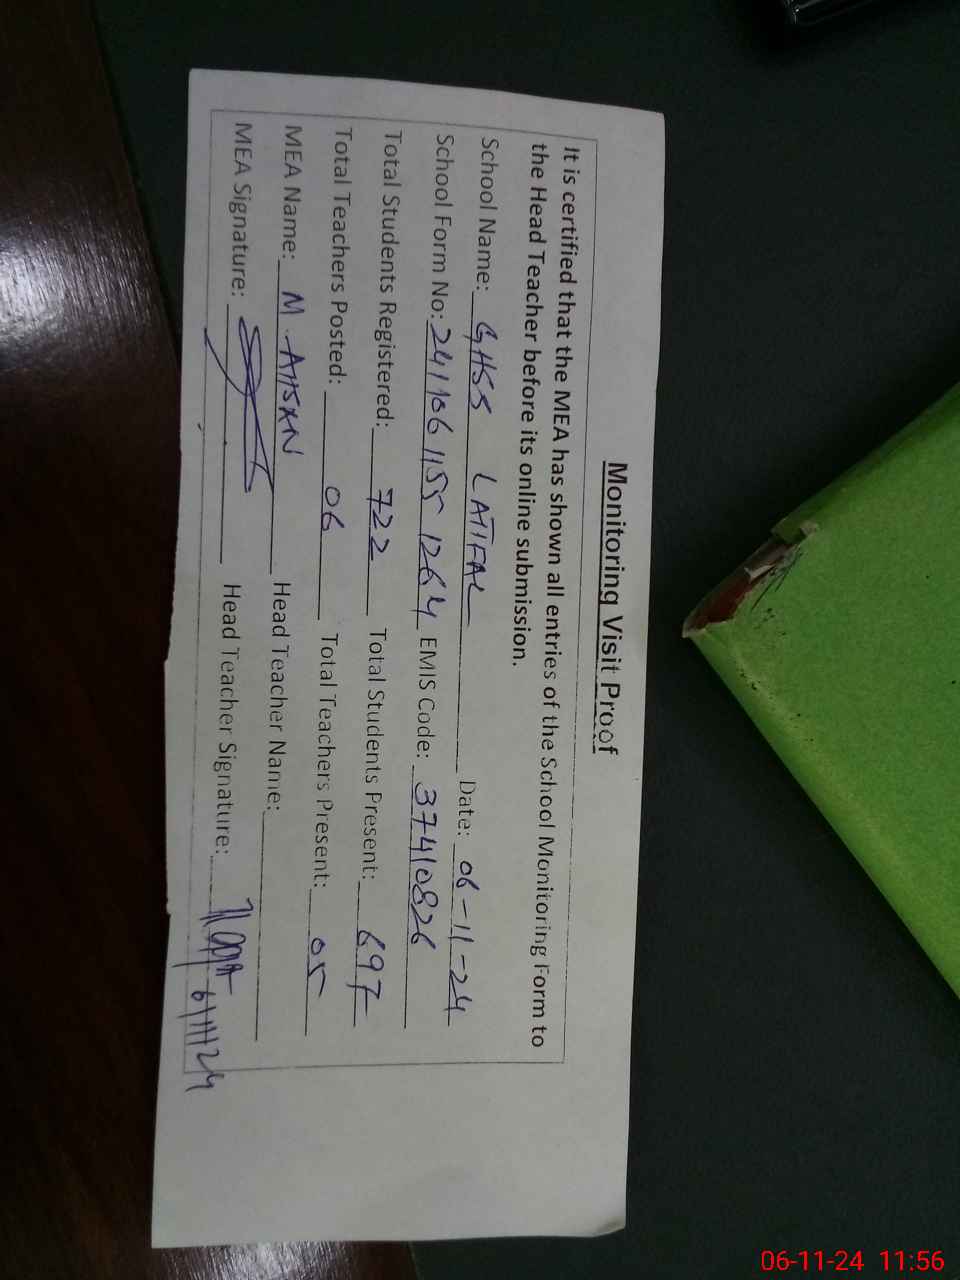 Monitoring Visit Proof
It is certified that the MEA has shown all entries of the School Monitoring Form to
the Head Teacher before its online submission.
School Name: GHSS LATIFAL Date: 06-11-24
School Form No: 241106 1155 1264 EMIS Code: 37410826
Total Students Registered: 722 Total Students Present: 697
Total Teachers Posted: 06 Total Teachers Present: 05
MEA Name: M. AHSAN Head Teacher Name:
MEA Signature: Head Teacher Signature:
6/11/24
06-11-24 11:56